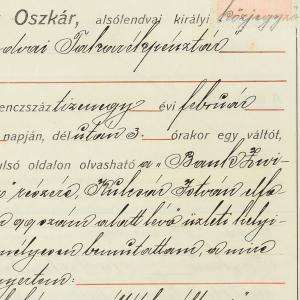 Oszkár, alsólendvai királyi közjegyző
dvai Takarékpénztár"
enczszáz tizenegy évi február
napján, dél után 3. órakor egy váltót,
ulsó oldalon olvasható a „Bank
" részére, Kulcsár István elfo
99 szám alatt levő üzleti helyi
mélyesen bemutattam, a mire
nyertem: